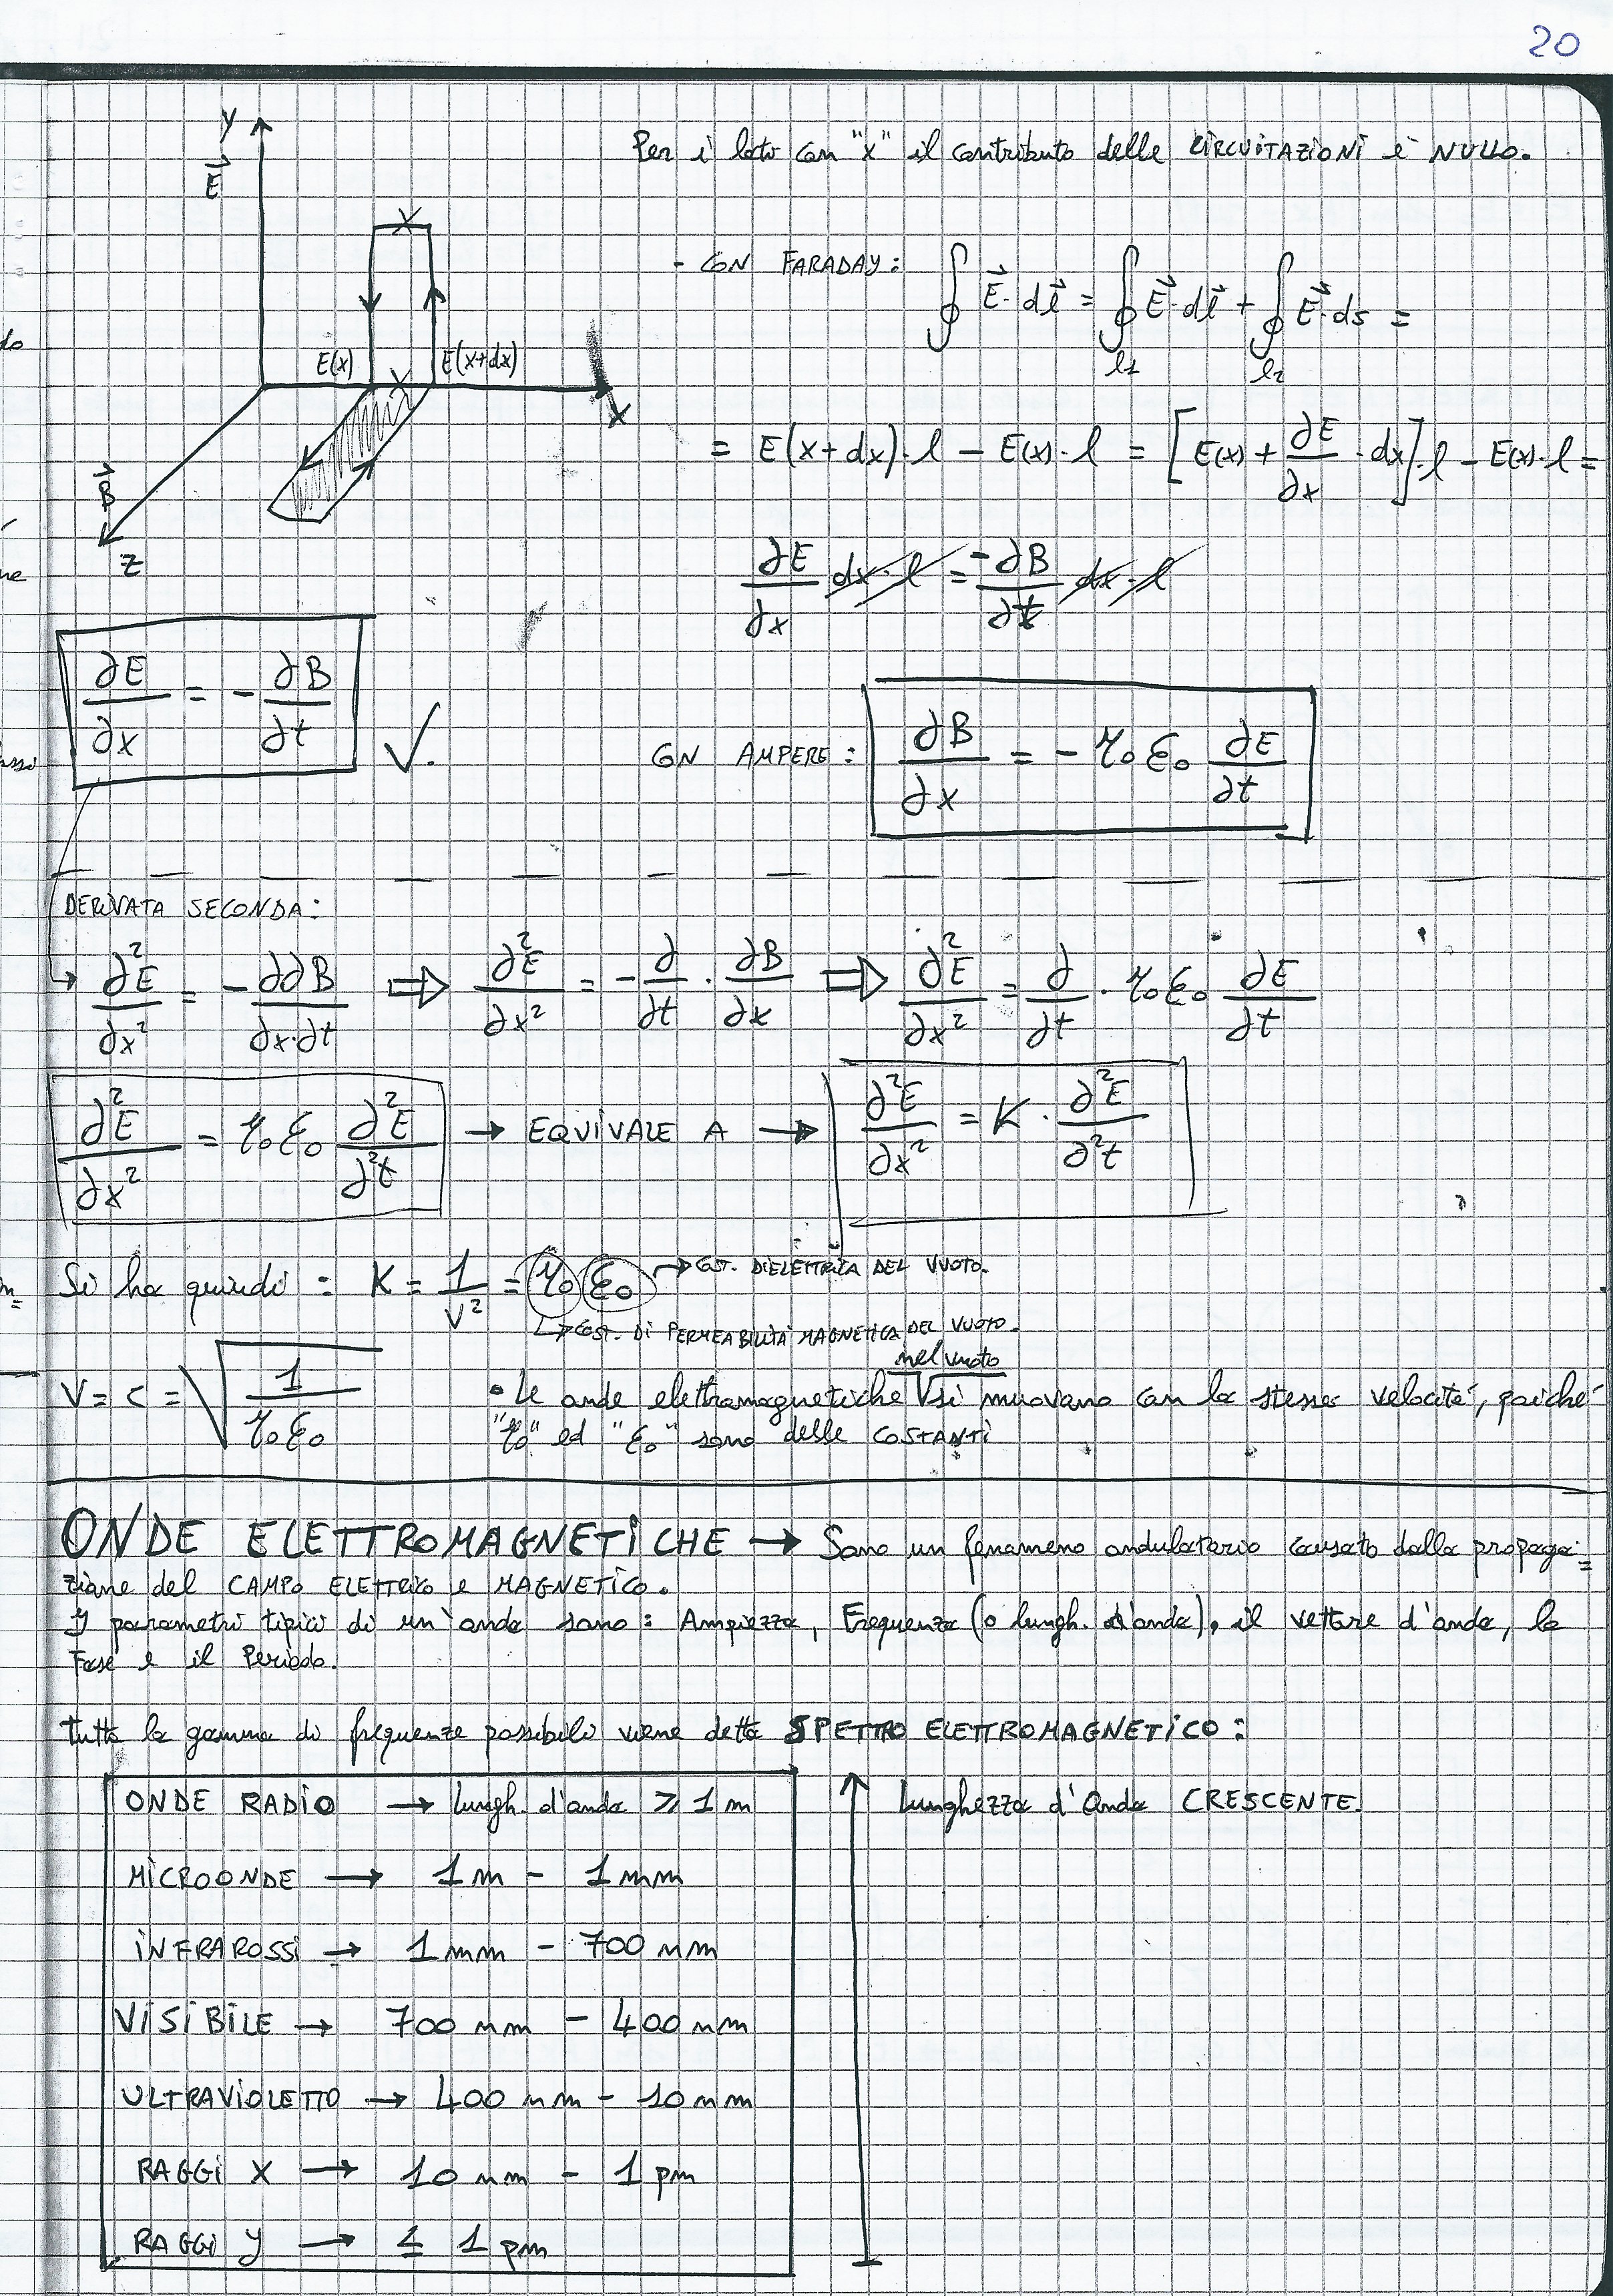 20
y
E⃗
Per i lato con "x" il contributo delle CIRCUITAZIONI è NULLO.
X
- CON FARADAY: ∮ E⃗·dl⃗ = ∮l1 E⃗·dl⃗ + ∮l2 E⃗·ds =
E(x) X E(x+dx)
X
= E(x+dx)·l - E(x)·l = [E(x) + ∂E/∂x · dx]·l - E(x)·l =
B⃗
z
∂E/∂x dx·l = -∂B/∂t dx·l
∂E/∂x = - ∂B/∂t √.
CON AMPERE: ∂B/∂x = - μ0 ε0 ∂E/∂t
DERIVATA SECONDA:
→ ∂²E/∂x² = -∂∂B/∂x·∂t ⇒ ∂²E/∂x² = -∂/∂t · ∂B/∂x ⇒ ∂²E/∂x² = ∂/∂t · μ0ε0 ∂E/∂t
∂²E/∂x² = μ0ε0 ∂²E/∂²t → EQUIVALE A → ∂²E/∂x² = K · ∂²E/∂²t
Si ha quindi : K = 1/V² = μ0 ε0 → COST. DIELETTRICA DEL VUOTO.
↳ COST. DI PERMEABILITÀ MAGNETICA DEL VUOTO.
V = c = √1/μ0ε0
nel vuoto
• Le onde elettromagnetiche √ si muovano con la stessa velocità, poiché
"μ0" ed "ε0" sono delle COSTANTI
ONDE ELETTROMAGNETICHE → Sono un fenomeno ondulatorio causato dalla propaga=
zione del CAMPO ELETTRICO e MAGNETICO.
I parametri tipici di un'onda sono: Ampiezza, Frequenza (o lungh. d'onda), il vettore d'onda, la
Fase e il Periodo.
Tutta la gamma di frequenze possibili viene detta SPETTRO ELETTROMAGNETICO:
ONDE RADIO → lungh. d'onda ≥ 1 m
Lunghezza d'Onda CRESCENTE.
MICROONDE → 1 m - 1 mm
INFRAROSSI → 1 mm - 700 nm
VISIBILE → 700 nm - 400 nm
ULTRAVIOLETTO → 400 nm - 10 nm
RAGGI X → 10 nm - 1 pm
RAGGI γ → ≤ 1 pm